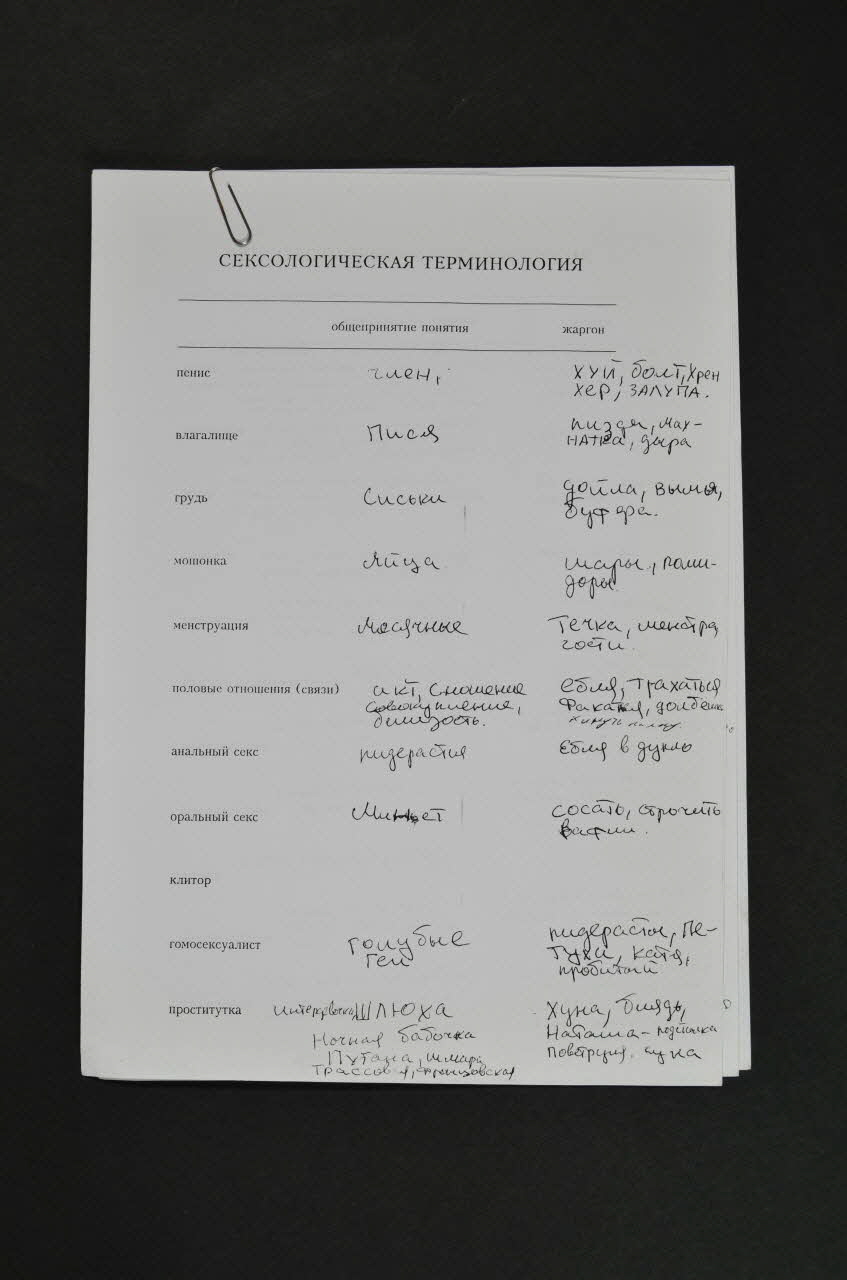 СЕКСОЛОГИЧЕСКАЯ ТЕРМИНОЛОГИЯ
общепринятие понятия жаргон
пенис член, хуй, болт, хрен
хер, ЗАЛУПА.
влагалище Пися пизда, мах-
натка, дыра
грудь Сиськи дойла, вымя,
буфера.
мошонка Яйца шары, поми-
доры.
менструация Месячные Течка, менстра
гости.
половые отношения (связи) акт, сношение ебля, трахаться
совокупление, факаться, долбёшка
близость. кинуть палку.
анальный секс пидерастия ебля в дупло
оральный секс Миньет сосать, строчить
вафли.
клитор
гомосексуалист голубые пидерасты, пе-
геи тухи, катя,
пробитый
проститутка интердевочка, ШЛЮХА хуна, блядь,
Ночная бабочка Наташа - подстилка
Путана, шмара
Трассовая,